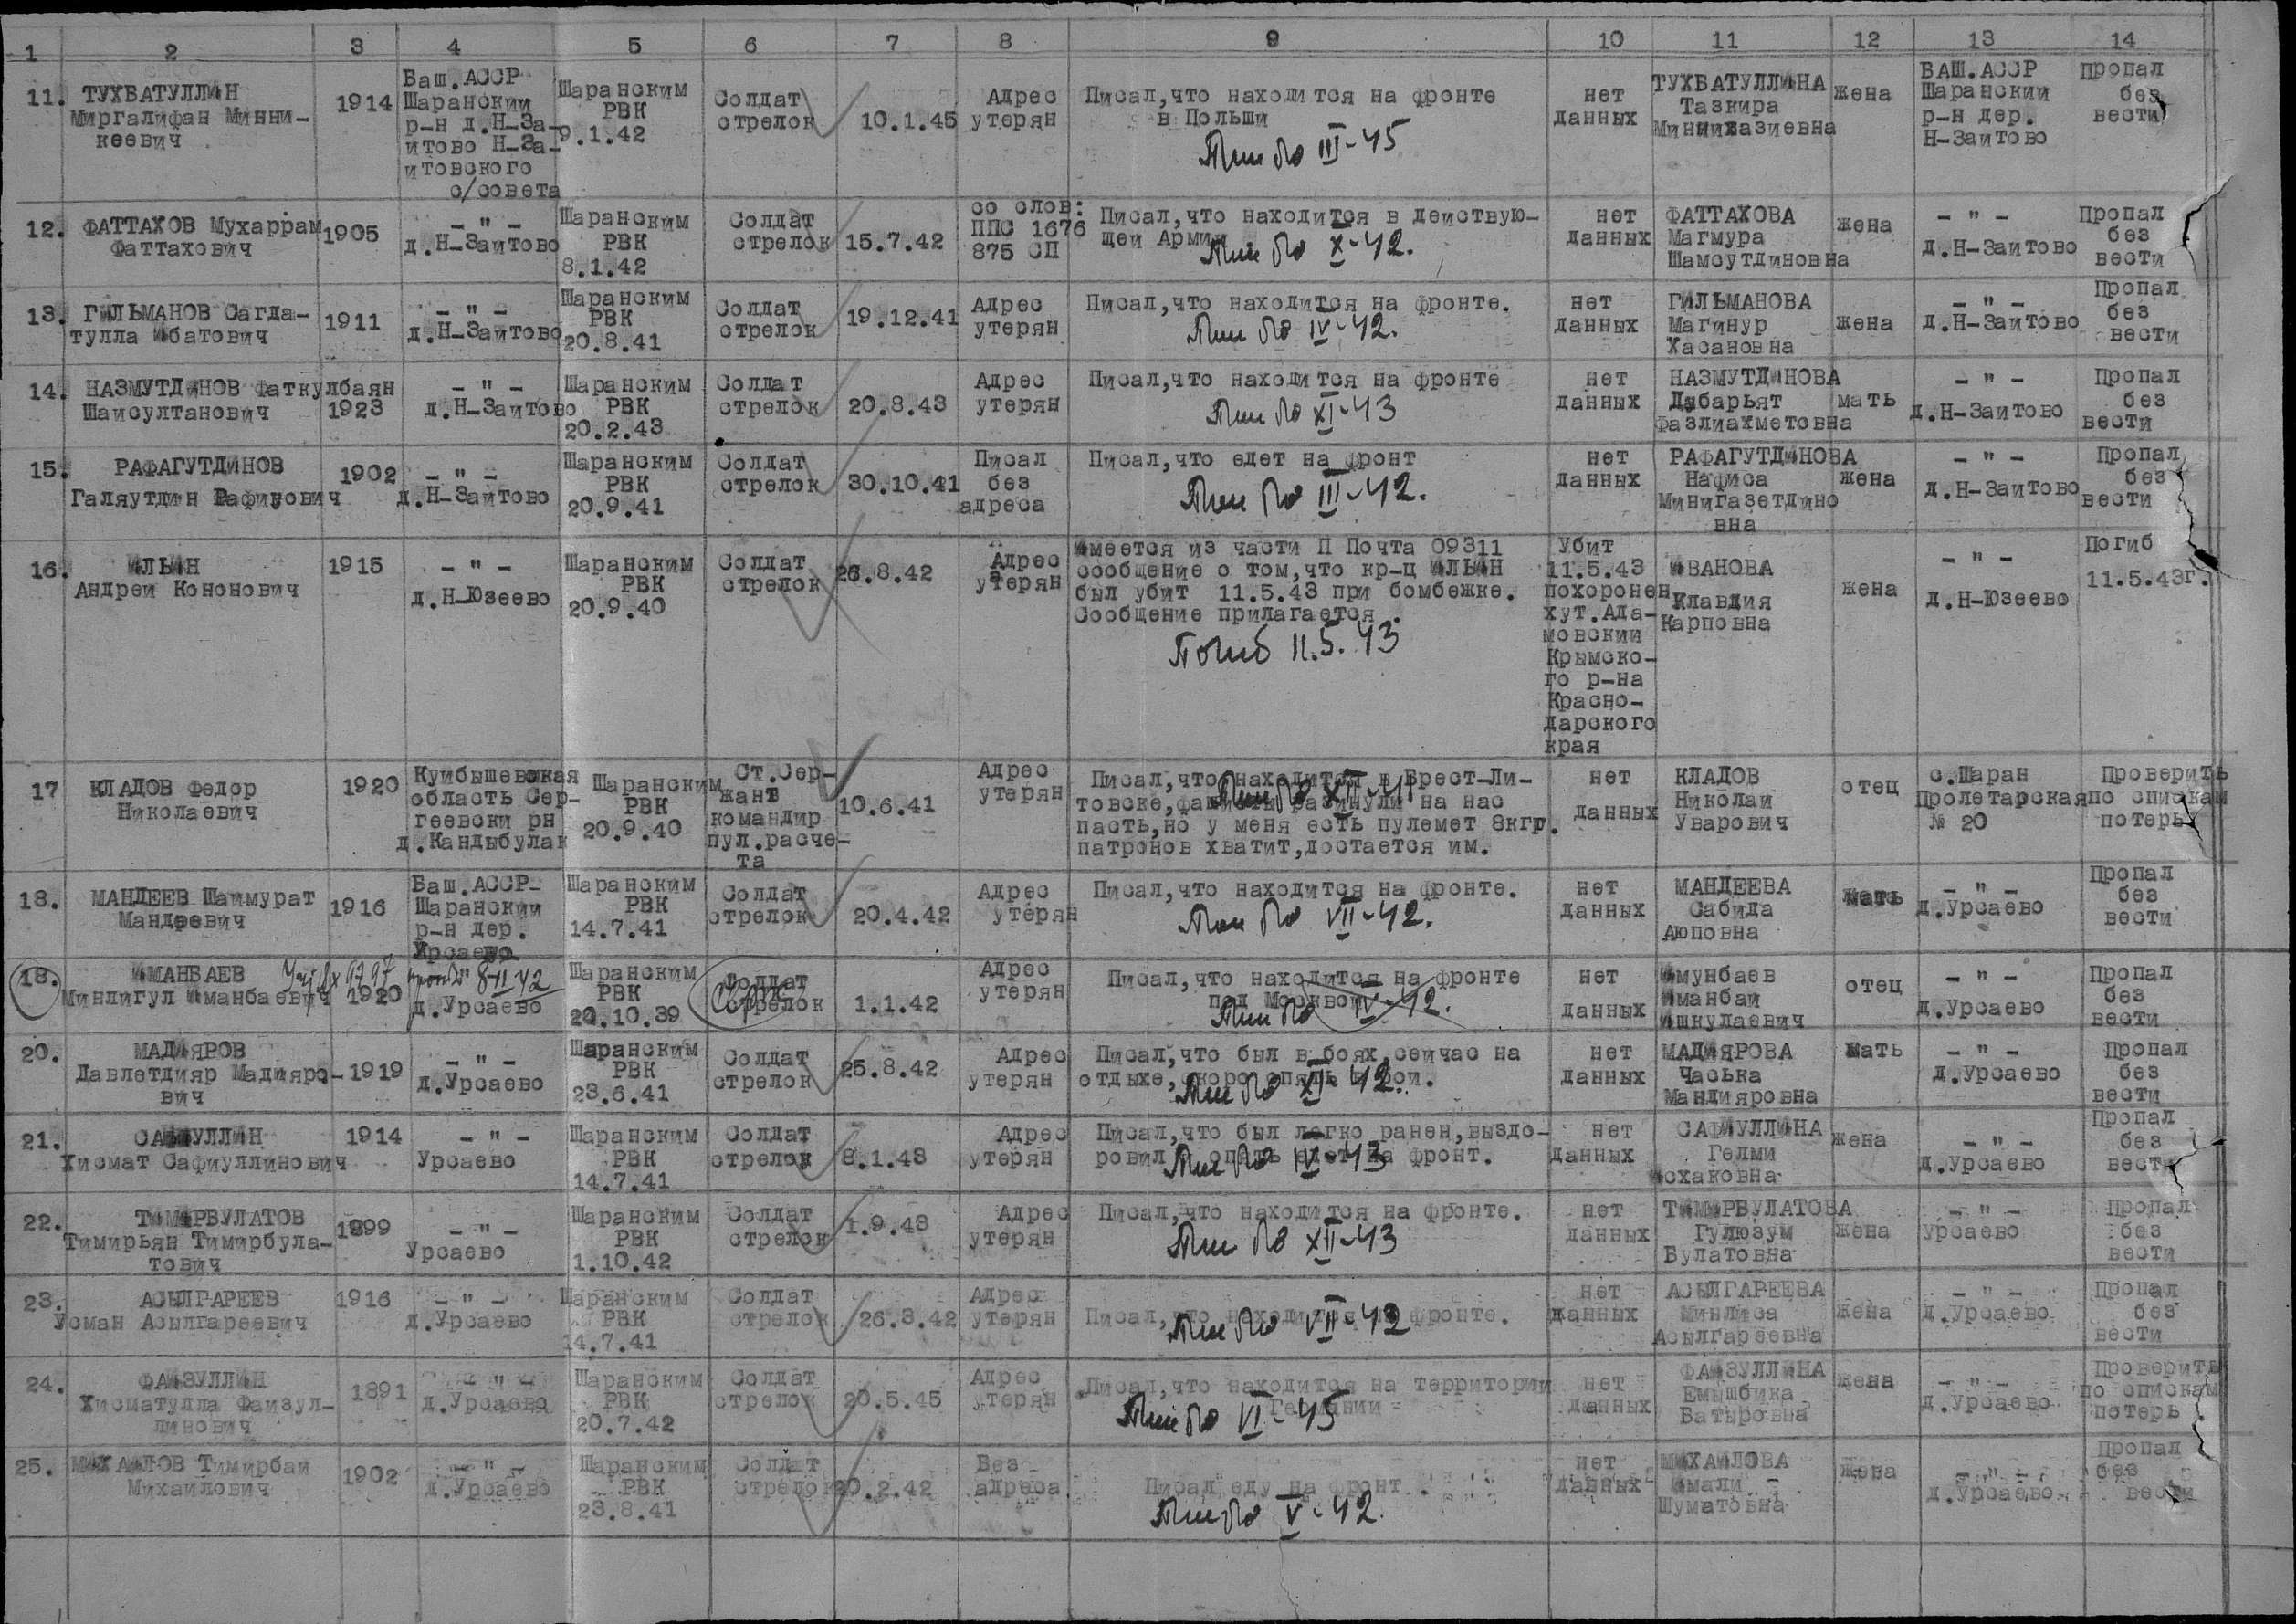 1 2 3 4 5 6 7 8 9 10 11 12 13 14
11. ТУХВАТУЛЛИН Миргалифан Минни-кеевич 1914 Баш.АССР Шаранский р-н д.Н-За-итово Н-За-итовского с/совета Шаранским РВК 9.1.42 Солдат стрелок 10.1.45 Адрес утерян Писал,что находится на фронте в Польши III-45 нет данных ТУХВАТУЛЛИНА Тазкира жена БАШ.АССР Шаранский р-н дер. Н-Заитово Пропал без вести
12. ФАТТАХОВ Мухаррам Фаттахович 1905 -"- д.Н-Заитово Шаранским РВК 8.1.42 Солдат стрелок 15.7.42 со слов: ППС 1676 875 СП Писал,что находится в действую-щей Армии X-42. нет данных ФАТТАХОВА Магмура Шамсутдиновна жена -"- д.Н-Заитово Пропал без вести
13. ГИЛЬМАНОВ Сагда-тулла Ибатович 1911 -"- д.Н-Заитово Шаранским РВК 20.8.41 Солдат стрелок 19.12.41 Адрес утерян Писал,что находится на фронте. IV-42. нет данных ГИЛЬМАНОВА Магинур Хасановна жена -"- д.Н-Заитово Пропал без вести
14. НАЗМУТДИНОВ Фаткулбаян Шайсултанович 1923 -"- д.Н-Заитово Шаранским РВК 20.2.43 Солдат стрелок 20.8.43 Адрес утерян Писал,что находится на фронте XI-43 нет данных НАЗМУТДИНОВА Фазлиахметовна мать -"- д.Н-Заитово Пропал без вести
15. РАФАГУТДИНОВ Галяутдин 1902 -"- д.Н-Заитово Шаранским РВК 20.9.41 Солдат стрелок 30.10.41 Писал без адреса Писал,что едет на фронт III-42. нет данных РАФАГУТДИНОВА Нафиса Минигазетдино вна жена -"- д.Н-Заитово Пропал без вести
16. ИЛЬИН Андрей Кононович 1915 -"- д.Н-Юзеево Шаранским РВК 20.9.40 Солдат стрелок 26.8.42 Адрес утерян Имеется из части П Почта 09311 сообщение о том,что кр-ц ИЛЬИН был убит 11.5.43 при бомбежке. Сообщение прилагается. Погиб 11.5.43 Убит 11.5.43 похоронен хут.Ада-мовский Крымско-го р-на Красно-дарского края ИВАНОВА Клавдия Карповна жена -"- д.Н-Юзеево Погиб 11.5.43г.
17 КЛАДОВ Федор Николаевич 1920 Куйбышевская область Сер-геевски рн д.Кандыбулак Шаранским РВК 20.9.40 Ст.Сер-жант командир пул.расче-та 10.6.41 Адрес утерян Писал,что находится в Брест-Ли-товске,фашисты разинули на нас пасть,но у меня есть пулемет 8кгр. патронов хватит,достается им. XII-41 нет данных КЛАДОВ Николай Уварович отец с.Шаран Пролетарская № 20 Проверить по спискам потерь
18. МАНДЕЕВ Шаймурат Мандеевич 1916 Баш.АССР- Шаранский р-н дер. Урсаево Шаранским РВК 14.7.41 Солдат стрелок 20.4.42 Адрес утерян Писал,что находится на фронте. VII-42. нет данных МАНДЕЕВА Сабида Аюповна мать -"- д.Урсаево Пропал без вести
18. ИМАНБАЕВ Минлигул Иманбаевич 1920 д.Урсаево Шаранским РВК 20.10.39 Солдат стрелок 1.1.42 Адрес утерян Писал,что находится на фронте под Москвой IV-42. нет данных Имунбаев Иманбай Ишкулаевич отец -"- д.Урсаево Пропал без вести
20. МАДИЯРОВ Давлетдияр Мадияро-вич 1919 -"- д.Урсаево Шаранским РВК 23.6.41 Солдат стрелок 25.8.42 Адрес утерян Писал,что был в боях,сейчас на отдыхе,скоро опять в бой. XI-42. нет данных МАДИЯРОВА Часька Мандияровна мать -"- д.Урсаево Пропал без вести
21. САФИУЛЛИН Хисмат Сафиуллинович 1914 -"- Урсаево Шаранским РВК 14.7.41 Солдат стрелок 8.1.43 Адрес утерян Писал,что был легко ранен,выздо-ровил опять едет на фронт. IV-43 нет данных САФИУЛЛИНА Гелми Исхаковна жена -"- д.Урсаево Пропал без вести
22. ТИМИРБУЛАТОВ Тимирьян Тимирбула-тович 1899 -"- Урсаево Шаранским РВК 1.10.42 Солдат стрелок 1.9.43 Адрес утерян Писал,что находится на фронте. XII-43 нет данных ТИМИРБУЛАТОВА Гулюзум Булатовна жена -"- Урсаево Пропал без вести
23. АСЫЛГАРЕЕВ Усман Асылгареевич 1916 -"- д.Урсаево Шаранским РВК 14.7.41 Солдат стрелок 26.3.42 Адрес утерян Писал,что находится на фронте. VII-42 нет данных АСЫЛГАРЕЕВА Минлиса Асылгареевна жена -"- д.Урсаево Пропал без вести
24. ФАИЗУЛЛИН Хисматулла Фаизул-линович 1891 -"- д.Урсаево Шаранским РВК 20.7.42 Солдат стрелок 20.5.45 Адрес утерян Писал,что находится на территории Германии VI-45 нет данных ФАИЗУЛЛИНА Емышбика Батыровна жена -"- д.Урсаево Проверить по спискам потерь
25. МИХАЙЛОВ Тимирбай Михайлович 1902 -"- д.Урсаево Шаранским РВК 23.8.41 Солдат стрелок 20.2.42 Без адреса Писал еду на фронт. V-42. нет данных МИХАЙЛОВА Имали Шуматовна жена -"- д.Урсаево Пропал без вести